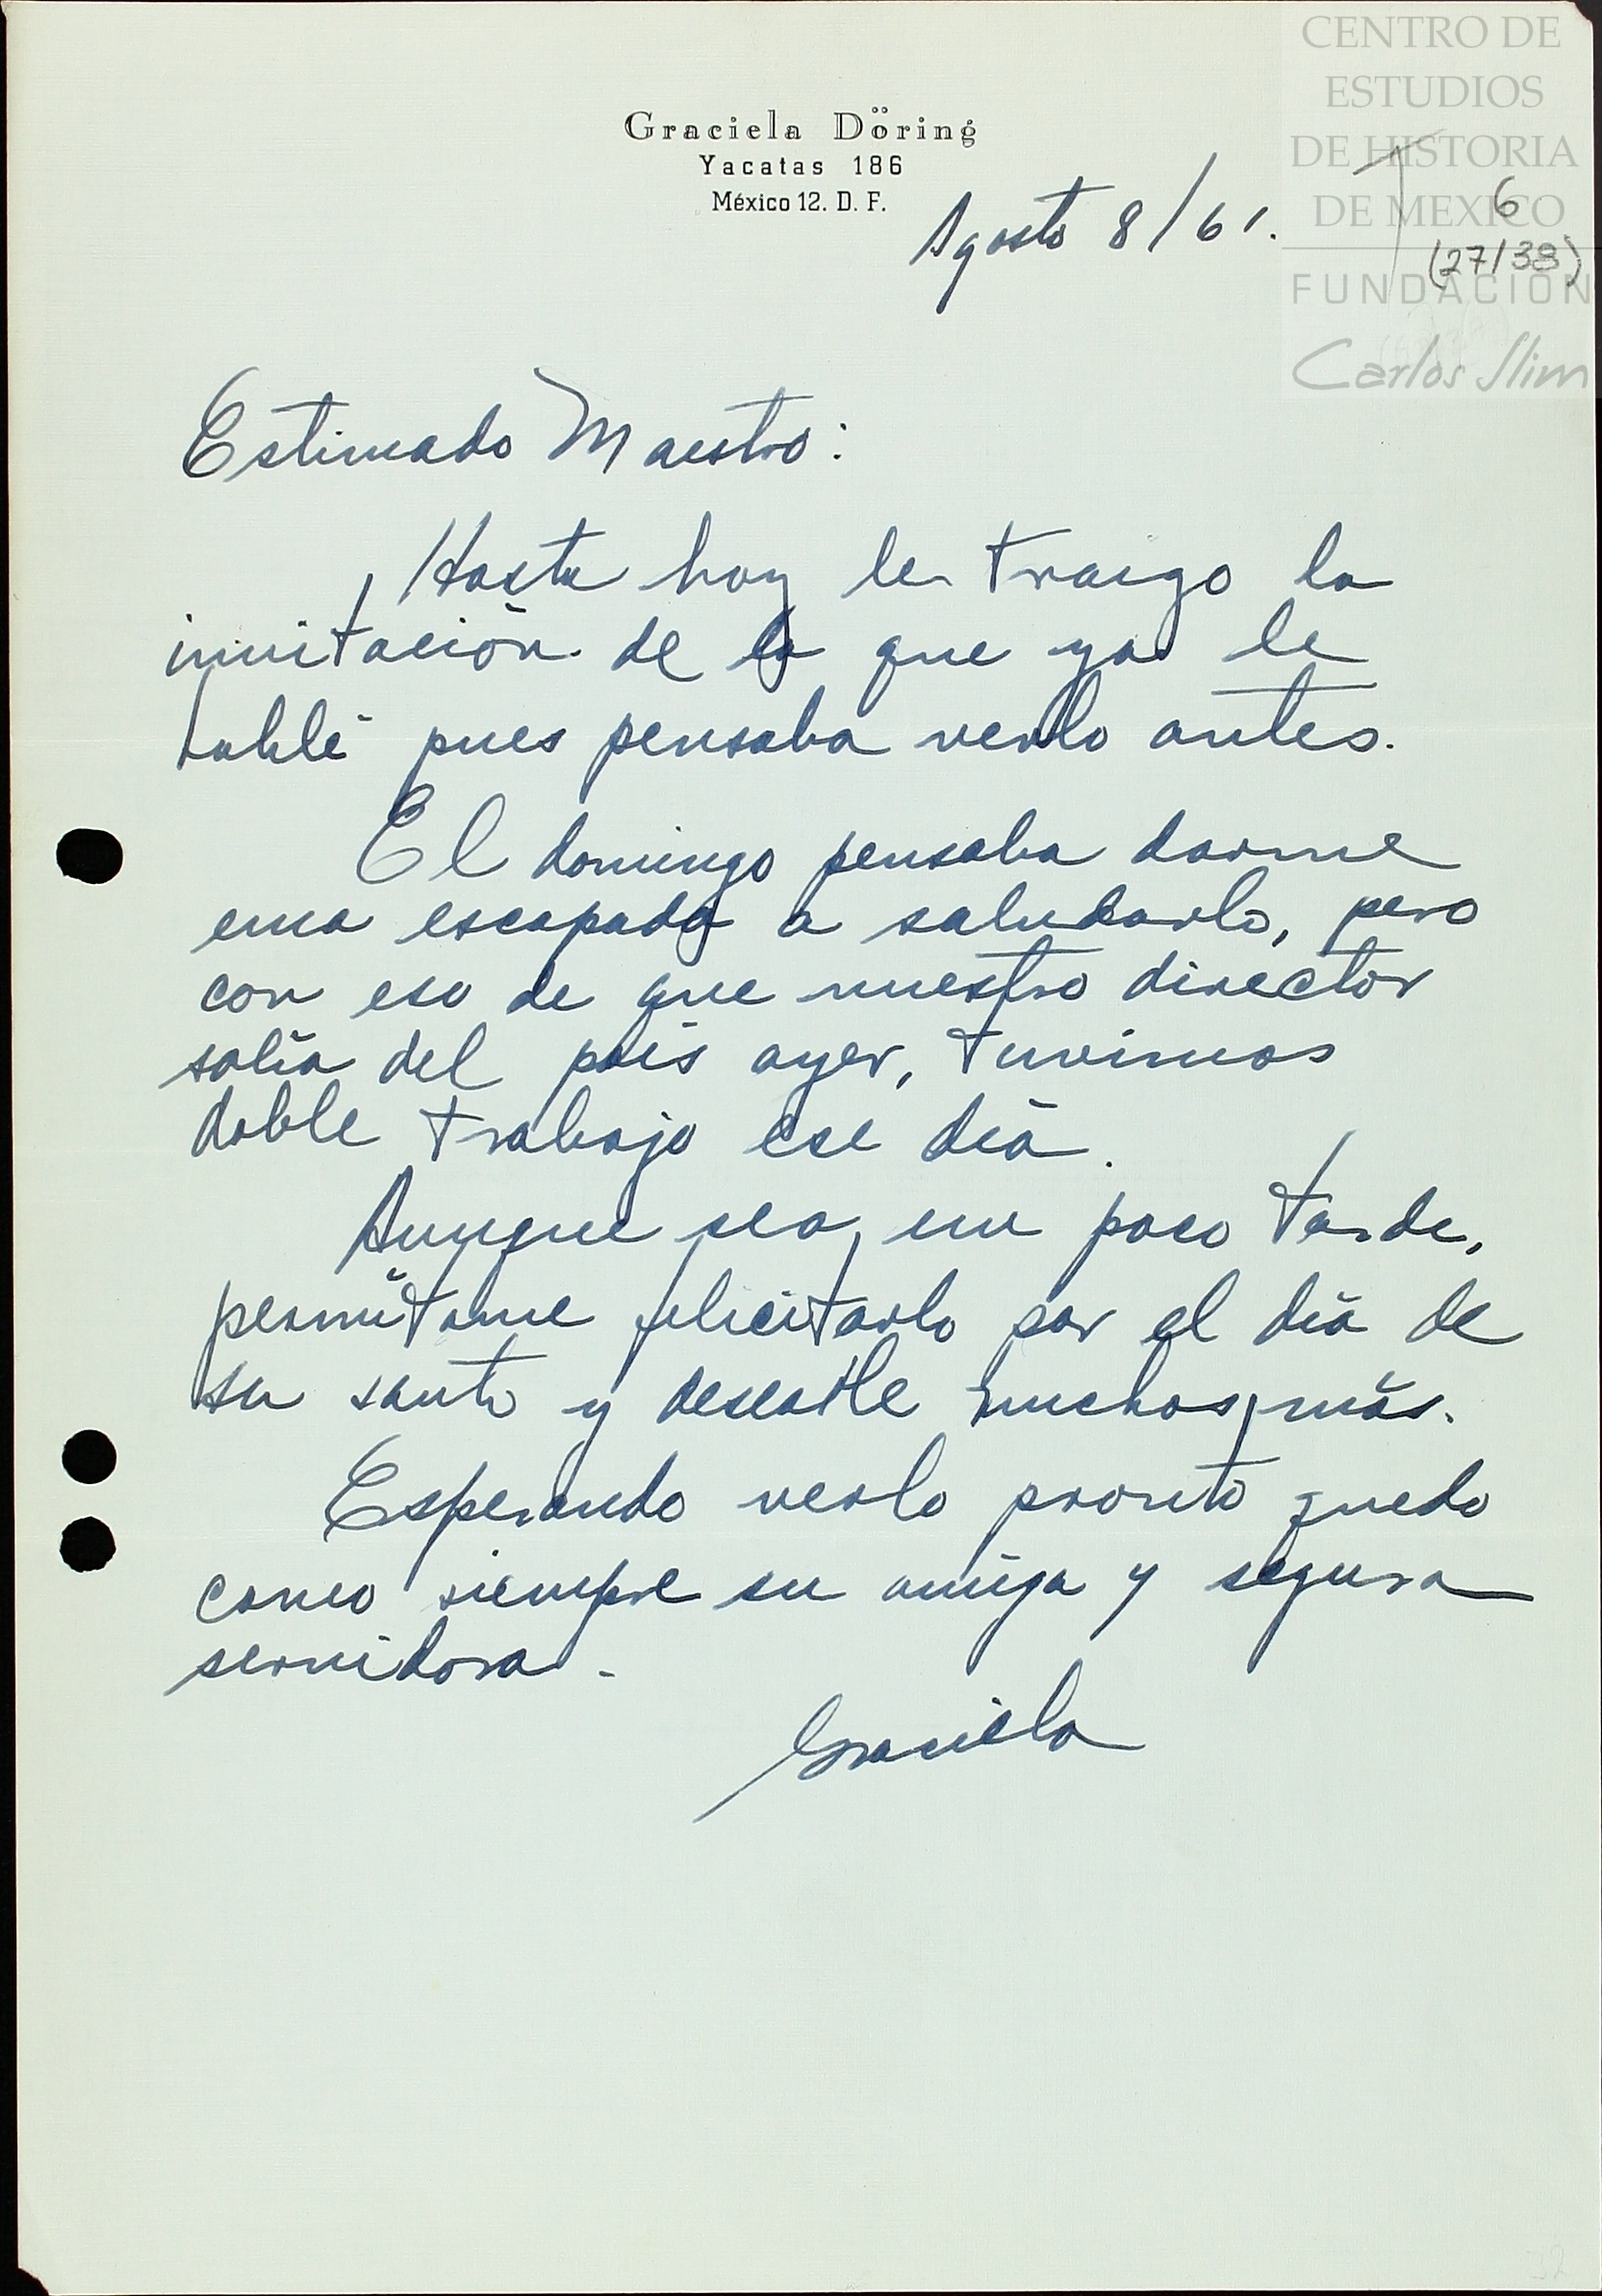 CENTRO DE
ESTUDIOS
DE HISTORIA
DE MEXICO
FUNDACIÓN
Carlos Slim
Graciela Döring
Yacatas 186
México 12. D. F.
Agosto 8/61.
6
(27/38)
Estimado Maestro:
Hasta hoy le traigo la
invitación de la que ya le
hablé pues pensaba verlo antes.
El domingo pensaba darme
una escapada a saludarlo, pero
con eso de que nuestro director
salía del país ayer, tuvimos
doble trabajo ese día.
Aunque sea, un poco tarde,
permítame felicitarlo por el día de
su santo y desearle muchos más.
Esperando verlo pronto quedo
como siempre su amiga y segura
servidora.
Graciela
32